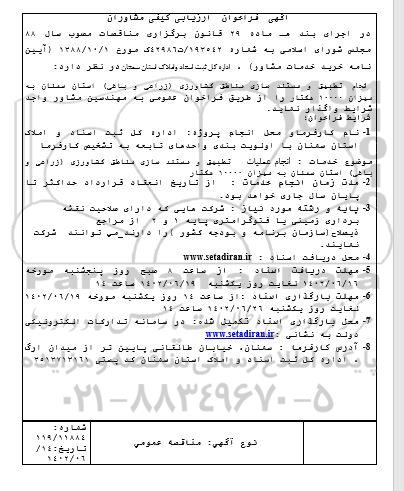 آگهی فراخوان ارزیابی کیفی مشاوران
در اجرای بند هـ ماده ۲۹ قانون برگزاری مناقصات مصوب سال ۸۸
مجلس شورای اسلامی به شماره ۱۹۳۵۴۲/ت۴۲۹۸۶ک مورخ ۱۳۸۸/۱۰/۱ (آیین
نامه خرید خدمات مشاور) ، اداره کل ثبت اسناد و املاک استان سمنان در نظر دارد:
انجام تطبیق و مستند سازی مناطق کشاورزی (زراعی و باغی) استان سمنان به
میزان ۱۰۰۰۰ هکتار را از طریق فراخوان عمومی به مهندسین مشاور واجد
شرایط واگذار نماید.
شرایط فراخوان:
1- نام کارفرما و محل انجام پروژه: اداره کل ثبت اسناد و املاک
استان سمنان با اولویت بندی واحدهای تابعه به تشخیص کارفرما
موضوع خدمات : انجام عملیات تطبیق و مستند سازی مناطق کشاورزی (زراعی و
باغی) استان سمنان به میزان ۱۰۰۰۰ هکتار
2- مدت زمان انجام خدمات : از تاریخ انعقاد قرارداد حداکثر تا
پایان سال جاری خواهد بود.
3- پایه و رشته مورد نیاز : شرکت هایی که دارای صلاحیت نقشه
برداری زمینی یا فتوگرامتری پایه ۱ و ۲ از مراجع
ذیصلاح(سازمان برنامه و بودجه کشور )را دارند می توانند شرکت
نمایند.
4- محل دریافت اسناد : www.setadiran.ir
5- مهلت دریافت اسناد : از ساعت ۸ صبح روز پنجشنبه مورخه
۱۴۰۲/۰۶/۱۶ لغایت روز یکشنبه ۱۴۰۲/۰۶/۱۹ ساعت ۱۴
6- مهلت بارگذاری اسناد :از ساعت ۱۴ روز یکشنبه مورخه ۱۴۰۲/۰۶/۱۹
لغایت روز یکشنبه ۱۴۰۲/۰۶/۲۶ ساعت ۱۴
7- محل بارگذاری اسناد تکمیل شده: در سامانه تدارکات الکترونیکی
دولت به نشانی :www.setadiran.ir
8- آدرس کارفرما : سمنان، خیابان طالقانی پایین تر از میدان ارگ
، اداره کل ثبت اسناد و املاک استان سمنان کد پستی ۳۵۱۳۷۱۳۱۶۱
۰۲۱-۸۸۳۴۹۶۷۰-۵
نوع آگهی: مناقصه عمومی
شماره:
۱۱۹/۱۱۸۸۴
تاریخ:۱۴/
۱۴۰۲/۰۶